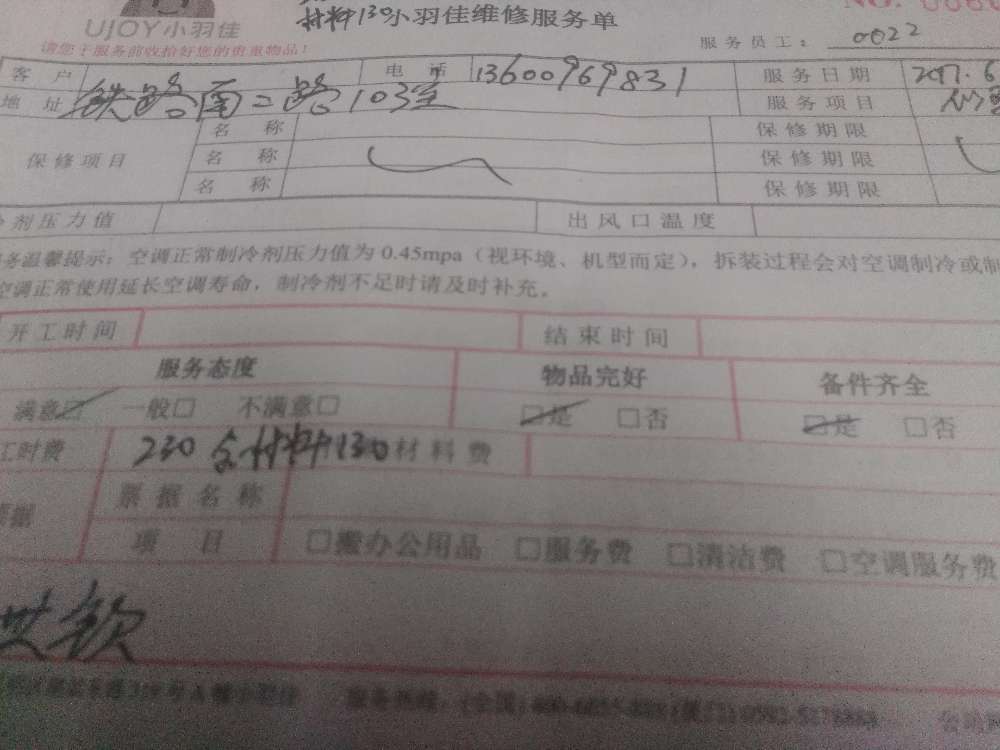 UJOY小羽佳
请您于服务前收拾好您的贵重物品!
材料130小羽佳维修服务单
NO.
服务员工: 0022
客户 电话 13600969831 服务日期
地址 铁路南二路103室 服务项目
保修项目
名称 保修期限
名称 保修期限
名称 保修期限
剂压力值 出风口温度
务温馨提示:空调正常制冷剂压力值为0.45mpa(视环境、机型而定),拆装过程会对空调制冷或制
空调正常使用延长空调寿命,制冷剂不足时请及时补充。
开工时间 结束时间
服务态度 物品完好 备件齐全
满意☑ 一般□ 不满意□ ☑是 □否 ☑是 □否
工时费 230 含材料130 材料费
票据
票据名称
项目 □搬办公用品 □服务费 □清洁费 □空调服务费